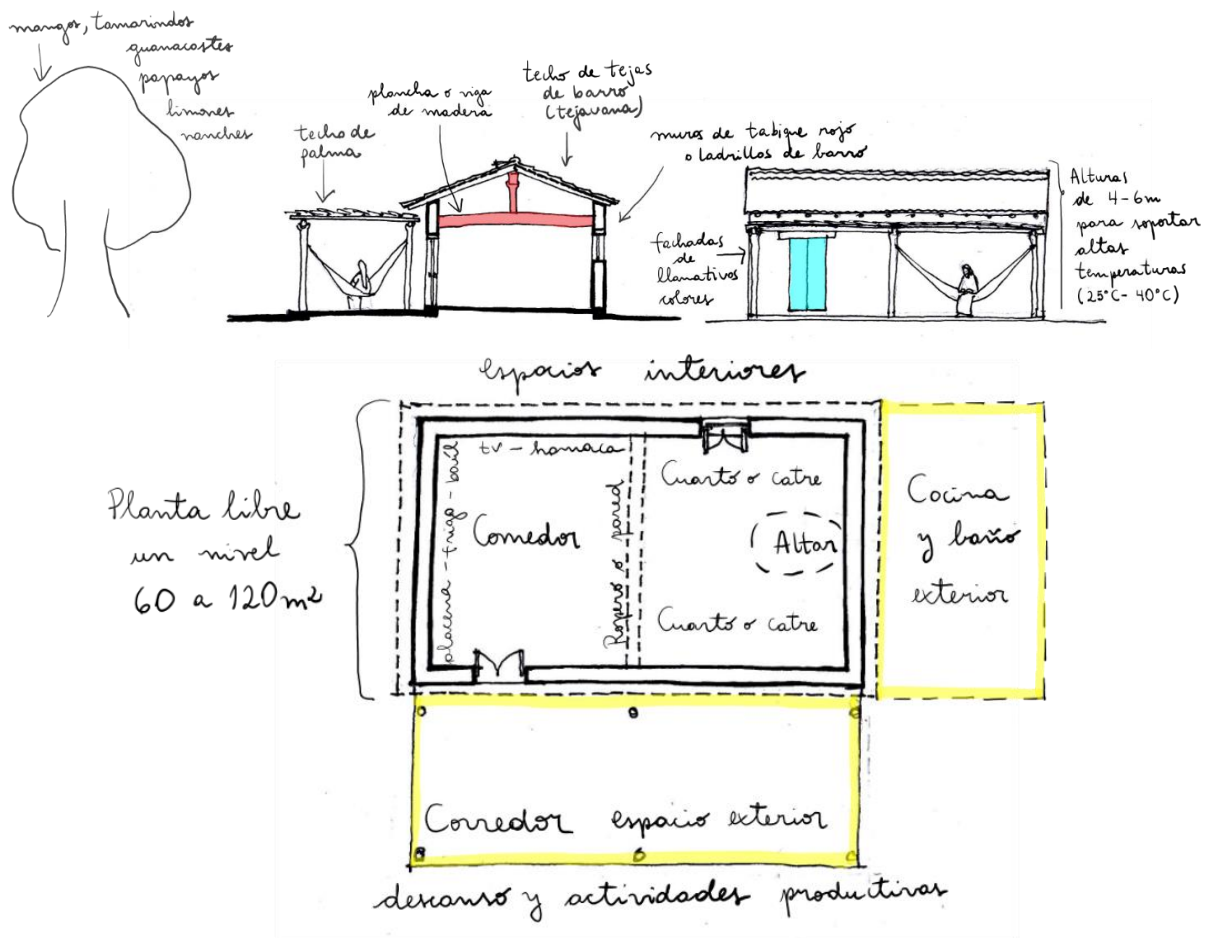 mangos, tamarindos
guanacastes
papayos
limones
nanches
techo de
palma
plancha o viga
de madera
techo de tejas
de barro
(tejavana)
muros de tabique rojo
o ladrillos de barro
fachadas
de
llamativos
colores
Alturas
de 4-6m
para soportar
altas
temperaturas
(25°C- 40°C)
espacios interiores
Planta libre
un nivel
60 a 120m²
placena - trigo - baúl
tv - hamaca
Comedor
Ropero o pared
Cuarto o catre
Altar
Cuarto o catre
Cocina
y baño
exterior
Corredor espacio exterior
descanso y actividades productivas